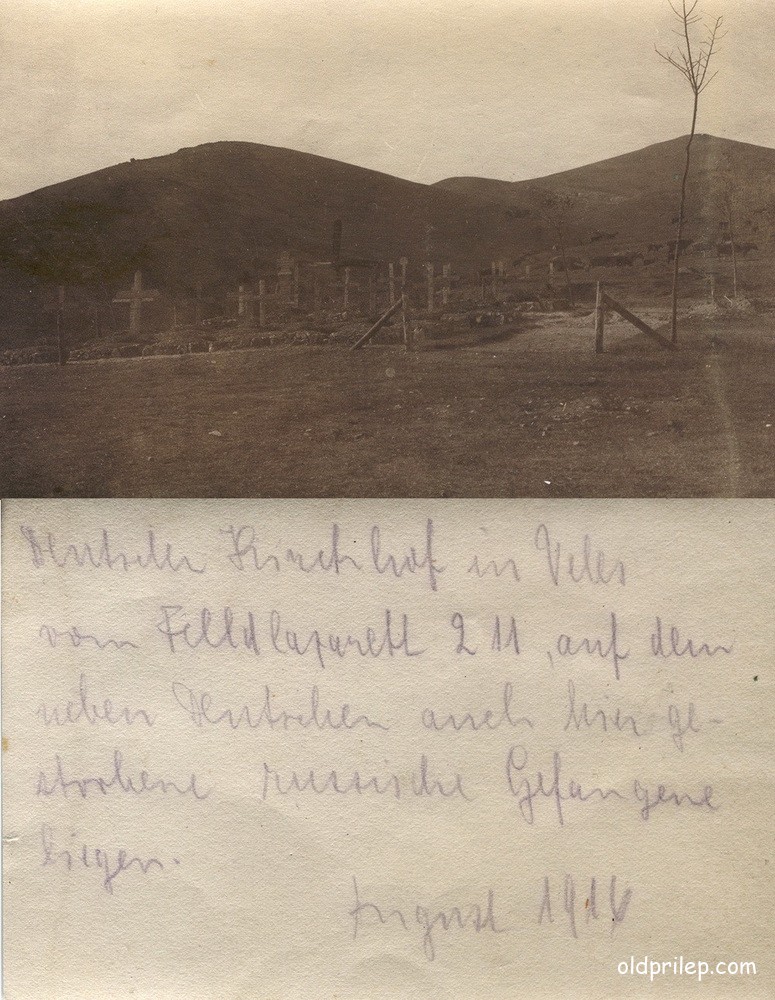 Deutscher Kirchhof in Veles
vom Feldlazarett 211, auf dem
neben Deutschen auch hier ge-
storbene russische Gefangene
liegen.
August 1916
oldprilep.com